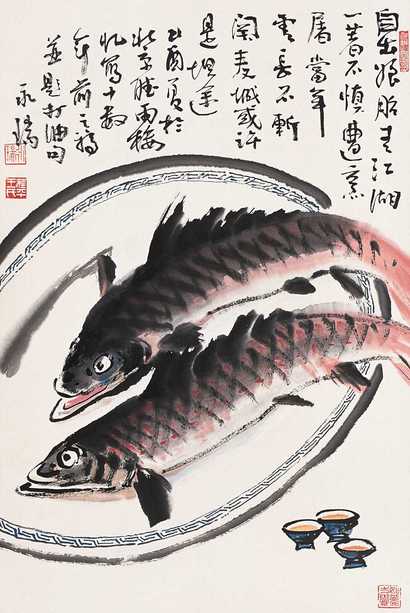 自出娘胎走江湖
一着不慎遭烹
屠當年
雲長不斬
關麦城或許
是坦途
乙酉夏於
北京聽雨樓
忆寫十数
年前之稿
並題打油句
永瑞